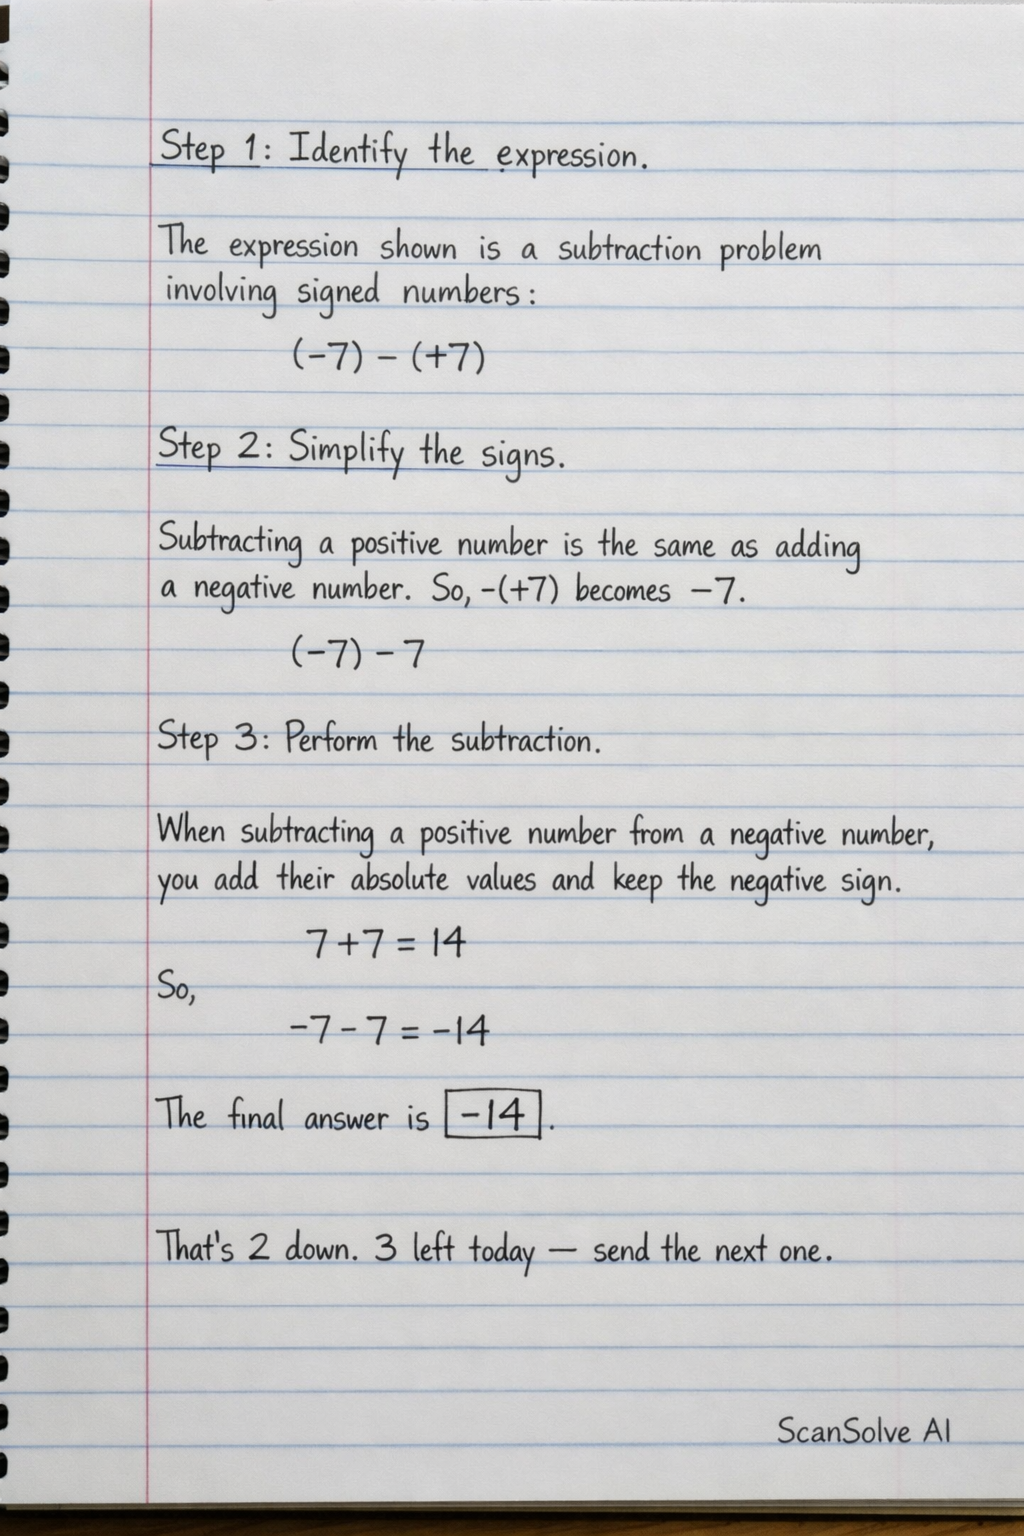 Step 1: Identify the expression.
The expression shown is a subtraction problem
involving signed numbers:
(-7) - (+7)
Step 2: Simplify the signs.
Subtracting a positive number is the same as adding
a negative number. So, -(+7) becomes -7.
(-7) - 7
Step 3: Perform the subtraction.
When subtracting a positive number from a negative number,
you add their absolute values and keep the negative sign.
7 + 7 = 14
So,
-7 - 7 = -14
The final answer is -14.
That's 2 down. 3 left today — send the next one.
ScanSolve AI